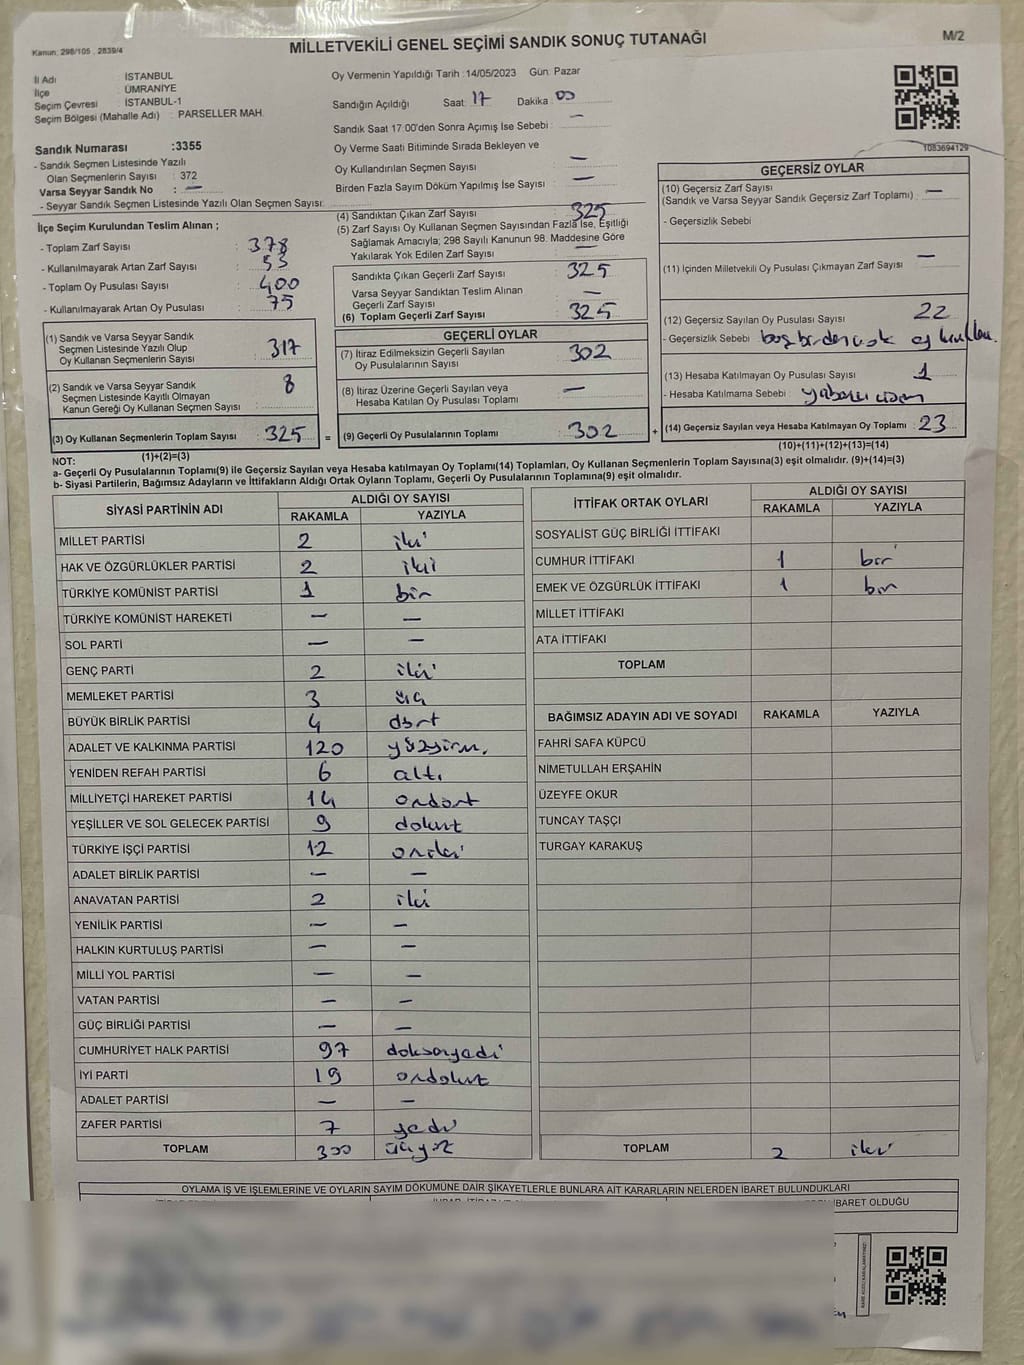 Kanun: 298/105 , 2839/4
MİLLETVEKİLİ GENEL SEÇİMİ SANDIK SONUÇ TUTANAĞI
M/2
İl Adı İSTANBUL
İlçe ÜMRANİYE
Seçim Çevresi İSTANBUL-1
Seçim Bölgesi (Mahalle Adı) : PARSELLER MAH.
Oy Vermenin Yapıldığı Tarih : 14/05/2023 Gün: Pazar
Sandığın Açıldığı Saat 17 Dakika 00
Sandık Saat 17:00'den Sonra Açımış İse Sebebi : —
Oy Verme Saati Bitiminde Sırada Bekleyen ve
Oy Kullandırılan Seçmen Sayısı —
Birden Fazla Sayım Döküm Yapılmış İse Sayısı —
1083694129
Sandık Numarası :3355
- Sandık Seçmen Listesinde Yazılı
Olan Seçmenlerin Sayısı : 372
Varsa Seyyar Sandık No : —
- Seyyar Sandık Seçmen Listesinde Yazılı Olan Seçmen Sayısı:
İlçe Seçim Kurulundan Teslim Alınan ;
- Toplam Zarf Sayısı : 378
- Kullanılmayarak Artan Zarf Sayısı : 53
- Toplam Oy Pusulası Sayısı : 400
- Kullanılmayarak Artan Oy Pusulası : 75
(1) Sandık ve Varsa Seyyar Sandık
Seçmen Listesinde Yazılı Olup
Oy Kullanan Seçmenlerin Sayısı 317
(2) Sandık ve Varsa Seyyar Sandık
Seçmen Listesinde Kayıtlı Olmayan
Kanun Gereği Oy Kullanan Seçmen Sayısı 8
(3) Oy Kullanan Seçmenlerin Toplam Sayısı : 325 =
(1)+(2)=(3)
(4) Sandıktan Çıkan Zarf Sayısı : 325
(5) Zarf Sayısı Oy Kullanan Seçmen Sayısından Fazla İse, Eşitliği
Sağlamak Amacıyla; 298 Sayılı Kanunun 98. Maddesine Göre
Yakılarak Yok Edilen Zarf Sayısı : —
Sandıkta Çıkan Geçerli Zarf Sayısı : 325
Varsa Seyyar Sandıktan Teslim Alınan
Geçerli Zarf Sayısı —
(6) Toplam Geçerli Zarf Sayısı : 325
GEÇERLİ OYLAR
(7) İtiraz Edilmeksizin Geçerli Sayılan
Oy Pusulalarının Sayısı : 302
(8) İtiraz Üzerine Geçerli Sayılan veya
Hesaba Katılan Oy Pusulası Toplamı —
(9) Geçerli Oy Pusulalarının Toplamı : 302 +
GEÇERSİZ OYLAR
(10) Geçersiz Zarf Sayısı
(Sandık ve Varsa Seyyar Sandık Geçersiz Zarf Toplamı) : —
- Geçersizlik Sebebi
(11) İçinden Milletvekili Oy Pusulası Çıkmayan Zarf Sayısı : —
(12) Geçersiz Sayılan Oy Pusulası Sayısı : 22
- Geçersizlik Sebebi boş birden çok oy
(13) Hesaba Katılmayan Oy Pusulası Sayısı : 1
- Hesaba Katılmama Sebebi : yabancı cisim
(14) Geçersiz Sayılan veya Hesaba Katılmayan Oy Toplamı : 23
(10)+(11)+(12)+(13)=(14)
NOT:
a- Geçerli Oy Pusulalarının Toplamı(9) ile Geçersiz Sayılan veya Hesaba katılmayan Oy Toplamı(14) Toplamları, Oy Kullanan Seçmenlerin Toplam Sayısına(3) eşit olmalıdır. (9)+(14)=(3)
b- Siyasi Partilerin, Bağımsız Adayların ve İttifakların Aldığı Ortak Oyların Toplamı, Geçerli Oy Pusulalarının Toplamına(9) eşit olmalıdır.
SİYASİ PARTİNİN ADI ALDIĞI OY SAYISI
RAKAMLA YAZIYLA
MİLLET PARTİSİ 2 iki
HAK VE ÖZGÜRLÜKLER PARTİSİ 2 iki
TÜRKİYE KOMÜNİST PARTİSİ 1 bir
TÜRKİYE KOMÜNİST HAREKETİ — —
SOL PARTİ — —
GENÇ PARTİ 2 iki
MEMLEKET PARTİSİ 3 üç
BÜYÜK BİRLİK PARTİSİ 4 dört
ADALET VE KALKINMA PARTİSİ 120 yüzyirm.
YENİDEN REFAH PARTİSİ 6 altı
MİLLİYETÇİ HAREKET PARTİSİ 14 ondört
YEŞİLLER VE SOL GELECEK PARTİSİ 9 dokuz
TÜRKİYE İŞÇİ PARTİSİ 12 oniki
ADALET BİRLİK PARTİSİ — —
ANAVATAN PARTİSİ 2 iki
YENİLİK PARTİSİ — —
HALKIN KURTULUŞ PARTİSİ — —
MİLLİ YOL PARTİSİ — —
VATAN PARTİSİ — —
GÜÇ BİRLİĞİ PARTİSİ — —
CUMHURİYET HALK PARTİSİ 97 doksanyedi
İYİ PARTİ 19 ondokuz
ADALET PARTİSİ — —
ZAFER PARTİSİ 7 yedi
TOPLAM 300 üçyüz
İTTİFAK ORTAK OYLARI ALDIĞI OY SAYISI
RAKAMLA YAZIYLA
SOSYALİST GÜÇ BİRLİĞİ İTTİFAKI
CUMHUR İTTİFAKI 1 bir
EMEK VE ÖZGÜRLÜK İTTİFAKI 1 bir
MİLLET İTTİFAKI
ATA İTTİFAKI
TOPLAM
BAĞIMSIZ ADAYIN ADI VE SOYADI RAKAMLA YAZIYLA
FAHRİ SAFA KÜPCÜ
NİMETULLAH ERŞAHİN
ÜZEYFE OKUR
TUNCAY TAŞÇI
TURGAY KARAKUŞ
TOPLAM 2 iki
OYLAMA İŞ VE İŞLEMLERİNE VE OYLARIN SAYIM DÖKÜMÜNE DAİR ŞİKAYETLERLE BUNLARA AİT KARARLARIN NELERDEN İBARET BULUNDUKLARI
İBARET OLDUĞU